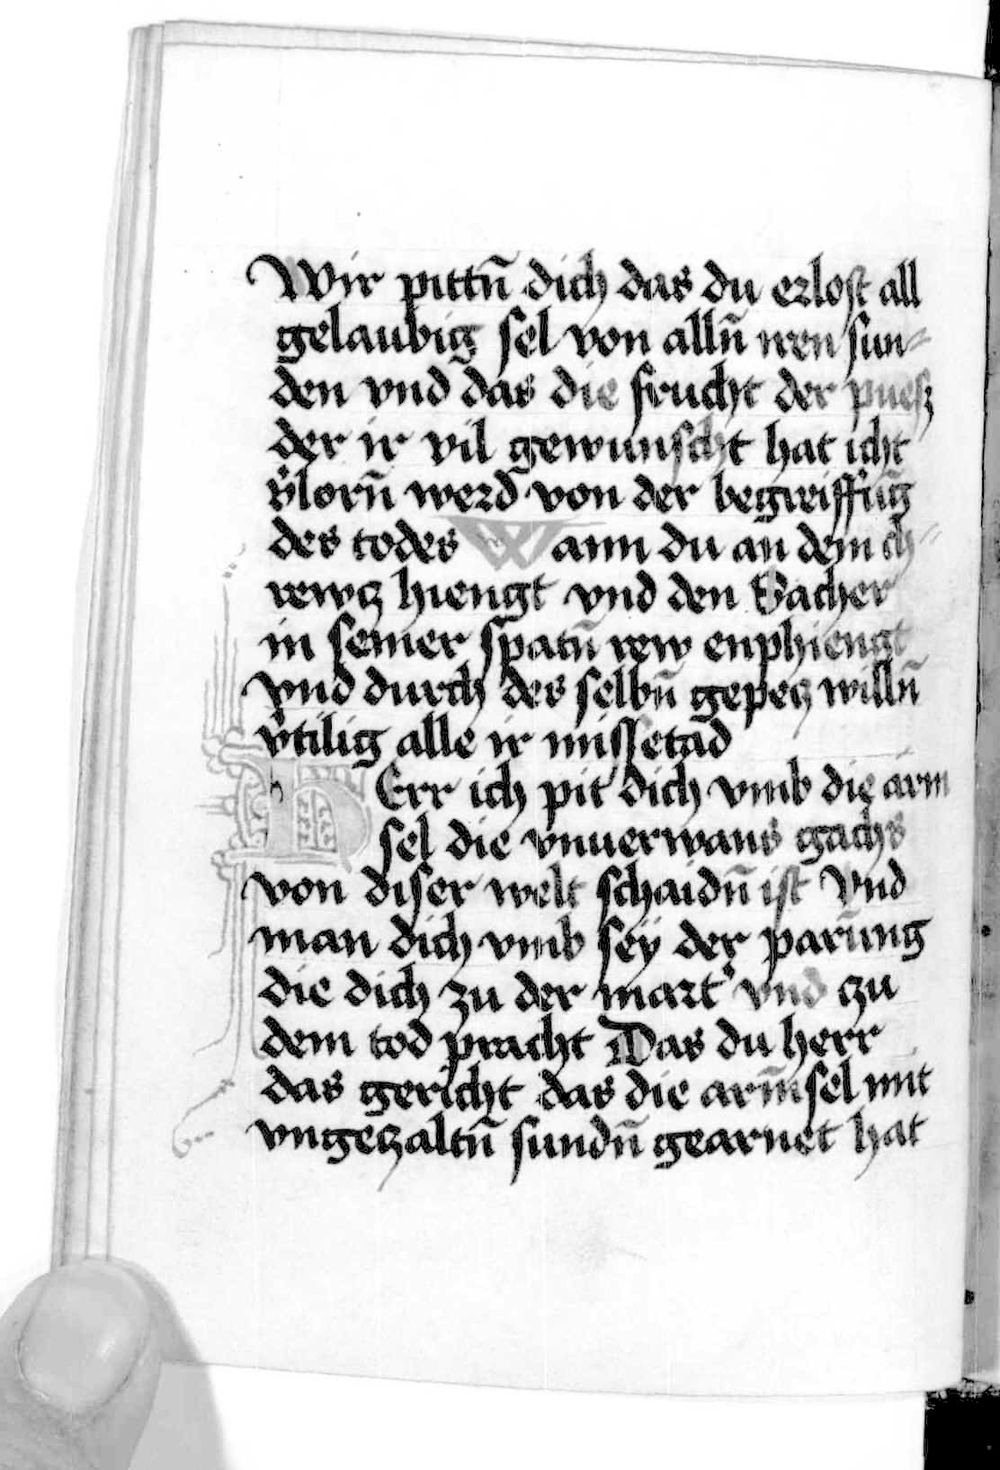 Wir pittn̄ dich das du erlost all
gelaubig sel von alln̄ iren sun⸗
den vnd das die frucht der puesz
der ir vil gewunscht hat icht
v̓lorn̄ werd von der begreiff̓ūg
des todes Wann du an dem ch⸗
rewcz hiengt vnd den Sacher
in seiner spatn̄ rew enphiengt
vnd durch des selbn̄ gepecz willn̄
v̓tilig alle ir missetad
HErr ich pit dich vmb die arm
sel die vnuerwans gachs
von diser welt schaidn̄ ist Vnd
man dich vmb sey der parūng
die dich zu der mart̓ vnd czu
dem tod pracht Das du herr
das gericht das die arm̄ sel mit
vngeczaltn̄ sundn̄ gearnet hat